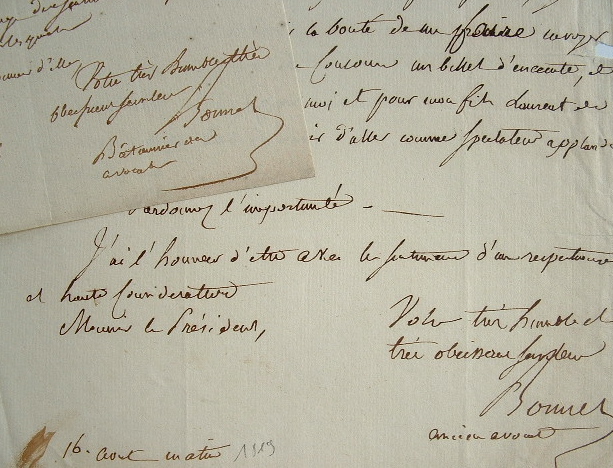 Votre très humble & très
obéissant serviteur
Bonnet
Bâtonnier des
avocats
la bonté de me faire envoyer
un billet d'enceinte, et
moi et pour mon fils Laurent
d'aller comme spectateur applaudir
Pardonnez l'importunité —
J'ai l'honneur d'être avec les sentimens d'une respectueuse
et haute Considération
Monsieur le Président,
Votre très humble et
très obéissant serviteur
Bonnet
ancien avocat
16. aout matin 1819